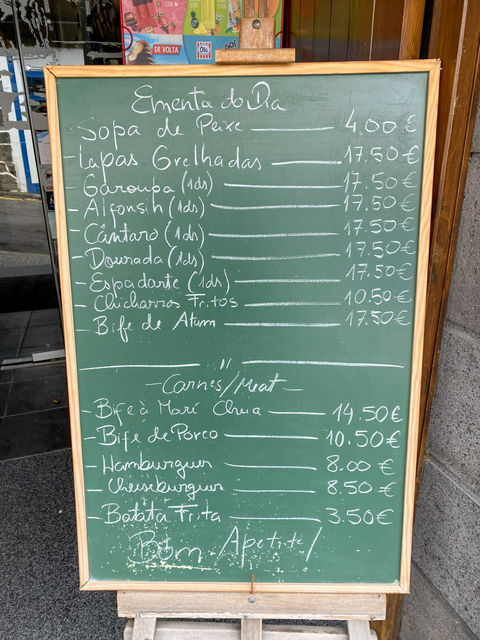 DE VOLTA
Olá
Ementa do Dia
Sopa de Peixe — 4.00 €
- Lapas Grelhadas — 17.50 €
- Garoupa (1ds) — 17.50 €
- Alfonsin (1ds) — 17.50 €
- Cântaro (1ds) — 17.50 €
- Dourada (1ds) — 17.50 €
- Espadante (1ds) — 17.50 €
- Chicharros Fritos — 10.50 €
- Bife de Atum — 17.50 €
— " —
- Carnes/Meat -
- Bife à Maré Cheia — 14.50 €
- Bife de Porco — 10.50 €
- Hamburguer — 8.00 €
- Cheeseburguer — 8.50 €
- Batata Frita — 3.50 €
Bom Apetite!